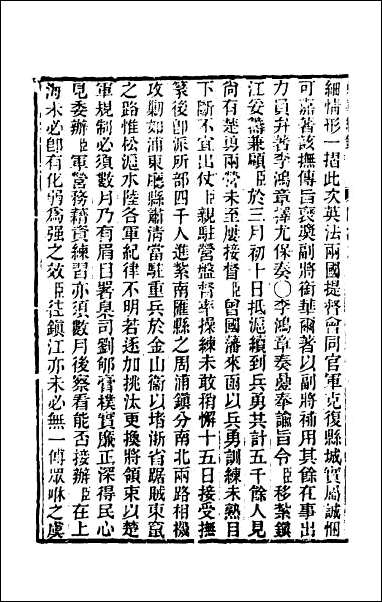 細情形一摺此次英法兩國提督會同官軍克復縣城實屬誠悃
可嘉著該撫傳旨褒奬副將銜華爾著以副將補用其餘在事出
力員弁著李鴻章擇尤保奏〇李鴻章奏疊奉諭旨令臣移紮鎮
江妥籌兼顧臣於三月初十日抵滬續到兵勇共計五千餘人見
尚有楚勇兩營未至屢接督臣曾國藩來函以兵勇訓練未熟目
下斷不宜出仗臣親駐營盤督率操練未敢稍懈十五日接受撫
篆後卽派所部四千人進紮南匯縣之周浦鎮分南北兩路相機
攻勦如浦東廳縣肅清當駐重兵於金山衞以堵浙省踞賊東竄
之路惟松滬水陸各軍紀律不明若逐加挑汰更換將領束以楚
軍規制必須數月乃有眉目署臬司劉郇膏樸實廉正深得民心
見委辦臣軍營務稍資練習亦須數月後察看能否接辦臣在上
海未必卽有化弱爲强之效臣往鎮江亦未必無一傅眾咻之虞